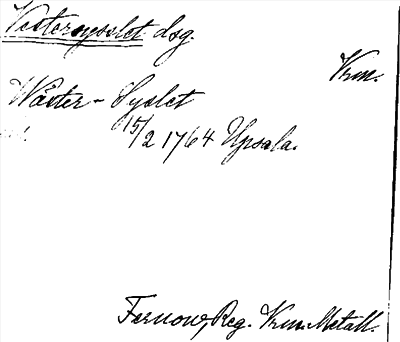 Vestersysslet dsg.
Vrm.
Wäster-Syslet
15/2 1764 Upsala.
Fernow, Reg. Vrm. Metall.